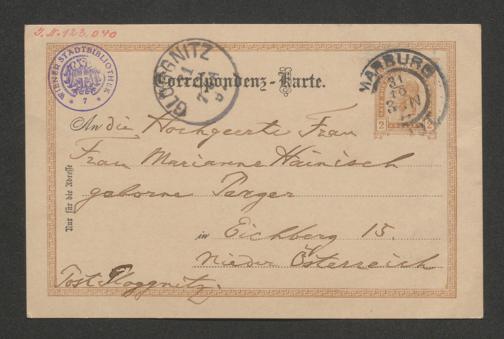 I.N. 123.040
WIENER STADTBIBLIOTHEK
* 7 *
GLOGGNITZ
MARBURG
31
2
2
Correspondenz-Karte.
An die Hochgeerte Frau
Frau Marianne Hainisch
geborne Perger
Nur für die Adresse
in Eichberg 15.
Nieder Österreich
Post Gloggnitz.